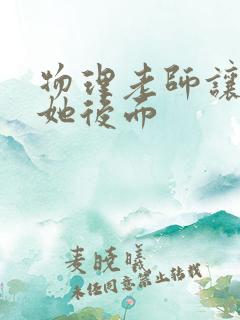 物理老師讓
她後面
麦晓曦
未经同意禁止转载